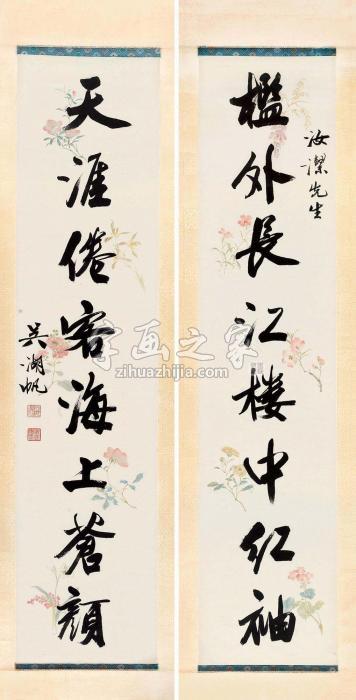 汝潔先生
檻外長江楼中红袖
天涯倦客海上蒼顔
吴湖帆
字画之家
zihuazhijia.com